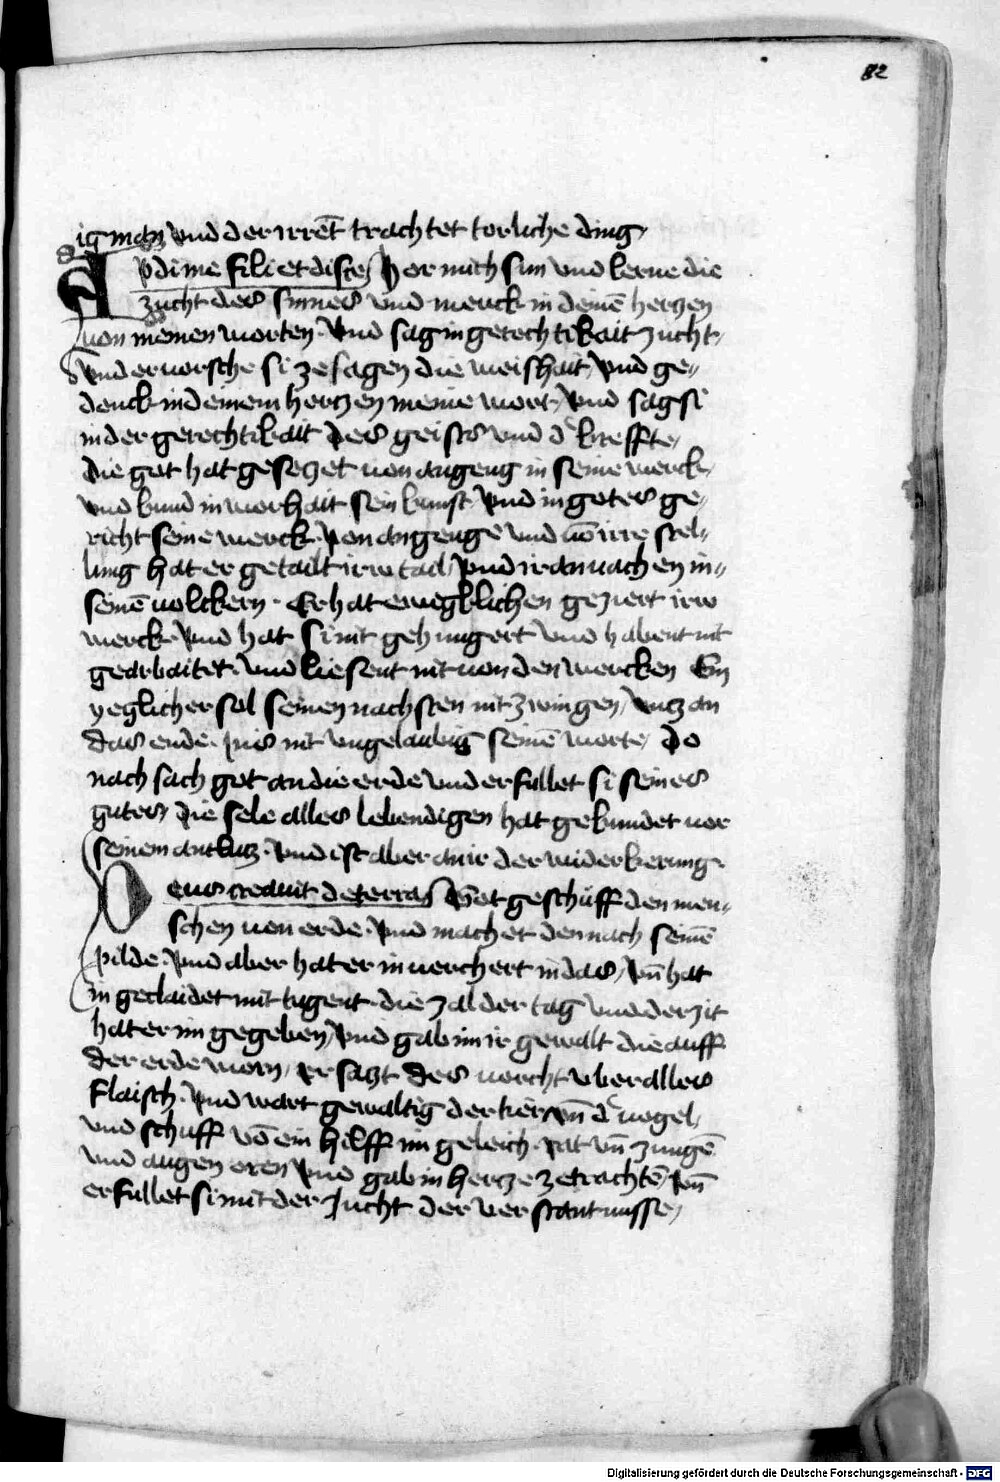 82
ig man vnd der irrēt trachtet torliche ding
Audi me fili et disce Hor mich sun vnd lerne die
zucht des sinnes vnd merck in deinē hertzen
von meinen worten. Vnd sag in gerechtikait zucht
vnd ervorsche si ze sagen die weishait, vnd ge„
denck in deinem hertzen meine wort, vnd sag si
in der gerechtikait des geistes vnd d kreffte,
die got hat gesetzet von angeng in seine werck,
vnd kund in worhait sein kunst, vnd in gotes ge„
richt seine werck. von angenge vnd vō irre stel„
lung hat er getailt irw tail, vnd ir anuachen in„
seinē volckern. Er hat ewegklichen geziert irw
werck. vnd hat si nit gehungert vnd habent nit
gearbaitet. vnd liesent nit von den wercken Ein
yeglicher sol seinen nachsten nit zwingen, vntz an
das ende. Pis nit vngelaubig seinē worte, Do
nach sach got an die erde vnd erfullet si seines
gutes, Die sele alles lebendigen hat gekundet vor
seinem antlutz. vnd ist aber an ir der widerkerung
Deus creauit de terra Got geschuff den men„
schen von erde. vnd machet den nach seinē
pilde. vnd aber hat er in verchert in das, vn̄ hat
in geclaidet mit tugent. die zal der tag vnd der zit
hat er im gegeben, vnd gab im ir gewalt die auff
der erde worn, er satzt des vorcht vber alles
flaisch. vnd wart gewaltig der tier vn̄ d vogel,
vnd schuff vō ein hilff im geleich. rat vn̄ zungē
vnd augen oren vnd gab in hertze ze trachtē, vn̄
erfullet si mit der zucht der verstantnusse,
Digitalisierung gefördert durch die Deutsche Forschungsgemeinschaft - DFG